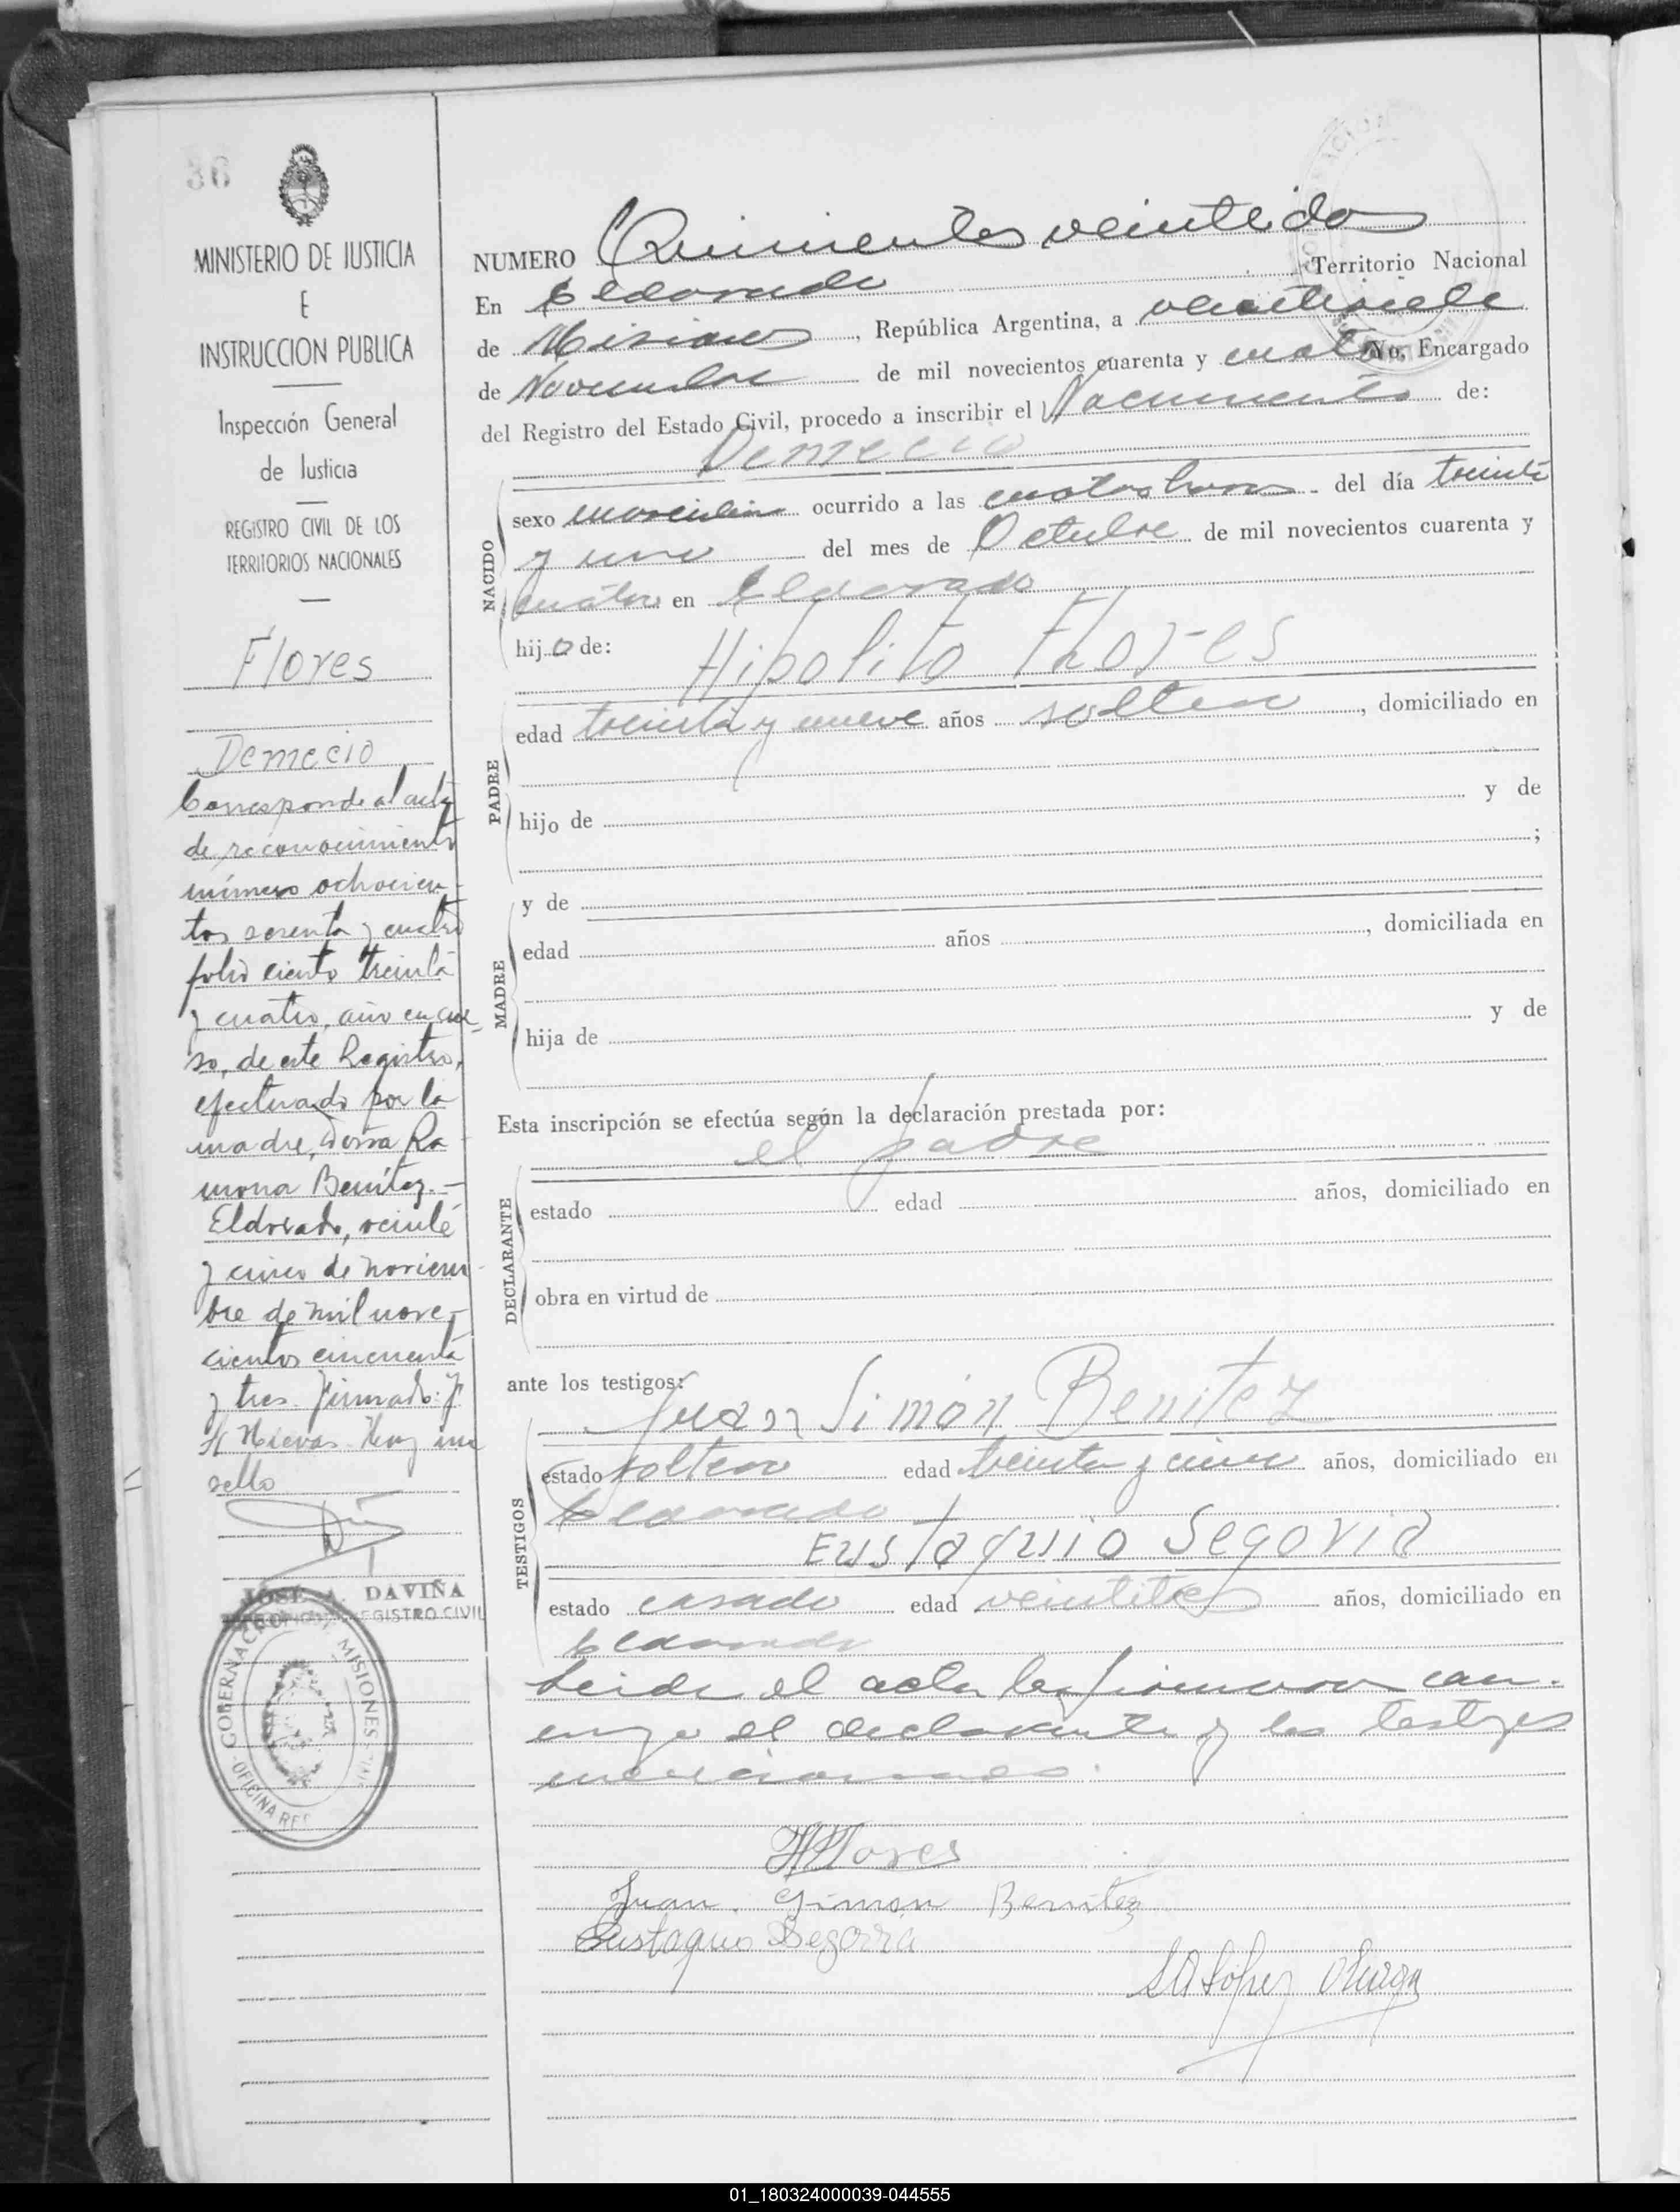 36
MINISTERIO DE JUSTICIA
E
INSTRUCCION PUBLICA
Inspección General
de Justicia
REGISTRO CIVIL DE LOS
TERRITORIOS NACIONALES
Flores
Demecio
Corresponde al acta
de reconocimiento
número ochocien-
tos sesenta y cuatro
folio ciento treinta
y cuatro, año en cur-
so, de este Registro,
efectuado por la
madre, doña Ra-
mona Benítez.-
Eldorado, veinte
y cinco de noviem-
bre de mil nove-
cientos cincuenta
y tres. Firmado: J.
H Nievas. Hay un
sello
JOSE A. DAVIÑA
REGISTRO CIVIL
GOBERNACION MISIONES
OFICINA REG
NUMERO Quinientos veintidos
En Eldorado Territorio Nacional
de Misiones, República Argentina, a veintisiete
de Noviembre de mil novecientos cuarenta y cuatro Yo, Encargado
del Registro del Estado Civil, procedo a inscribir el Nacimiento de:
Demecio
NACIDO
sexo masculino ocurrido a las cuatro horas del día treinta
y uno del mes de Octubre de mil novecientos cuarenta y
cuatro en Eldorado
hijo de: Hipolito Flores
PADRE
edad treinta y nueve años soltero, domiciliado en
hijo de y de
;
MADRE
y de
edad años , domiciliada en
hija de y de
Esta inscripción se efectúa según la declaración prestada por:
el padre
DECLARANTE
estado edad años, domiciliado en
obra en virtud de
ante los testigos:
Juan Simón Benitez
TESTIGOS
estado soltero edad treinta y cinco años, domiciliado en
Eldorado
Eustaquio Segovia
estado casado edad veintitres años, domiciliado en
Eldorado
Leida el acta la firmaron con-
migo el declarante y los testigos
mencionados.
HFlores
Juan. Simon Benitez
Eustaquio Segovia
01_180324000039-044555